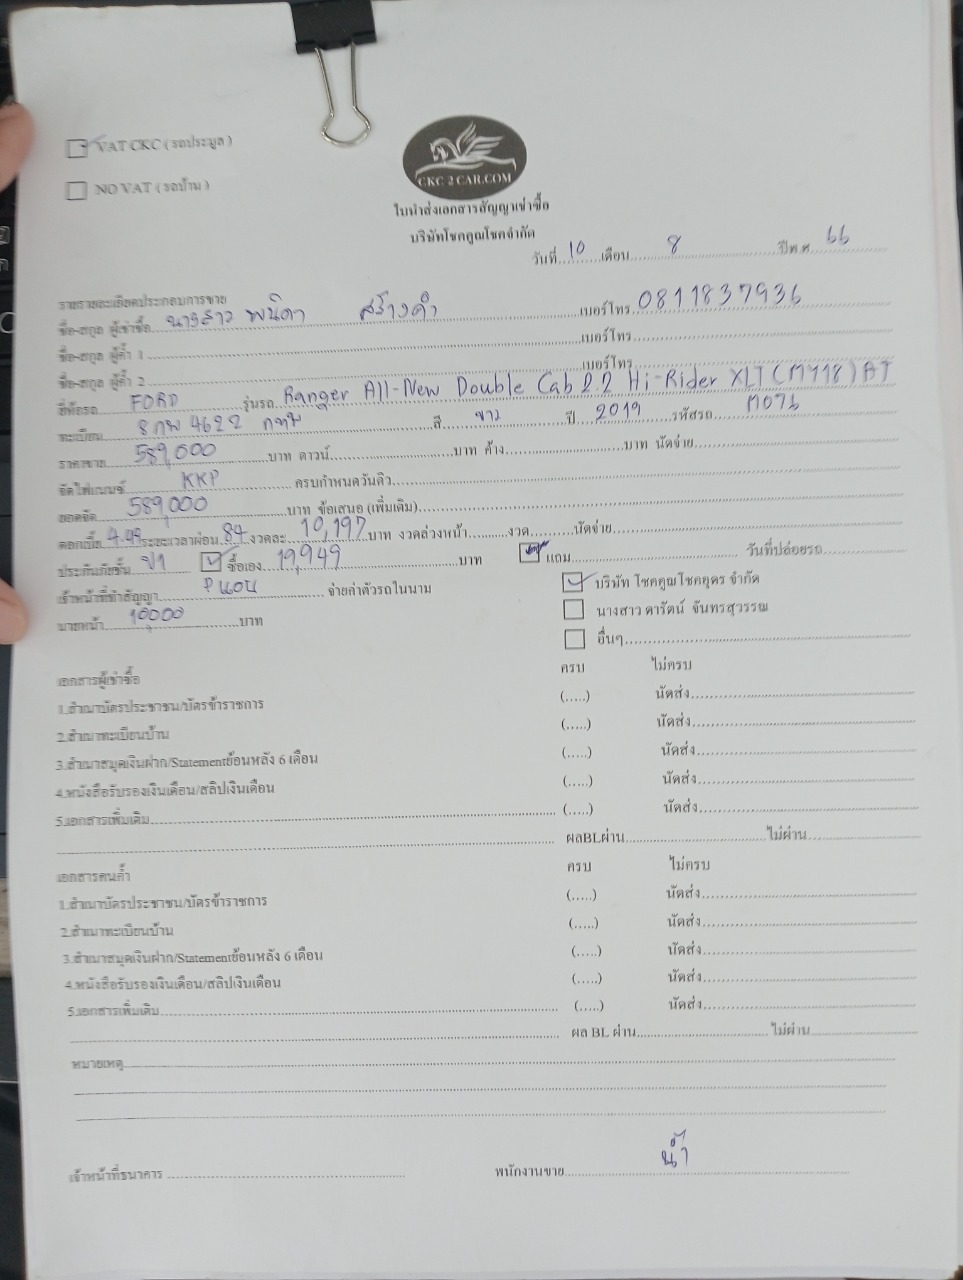 VAT CKC ( รถประมูล )
NO VAT ( รถบ้าน )
CKC 2 CAR.COM
ใบนำส่งเอกสารสัญญาเช่าซื้อ
บริษัทโชคคูณโชคจำกัด
วันที่....10....เดือน....8....ปีพ.ศ....66
รายรายละเอียดประกอบการขาย
ชื่อ-สกุล ผู้เช่าซื้อ...นางสาว พนิดา สร้างคำ...เบอร์โทร...0811837936
ชื่อ-สกุล ผู้ค้ำ 1...เบอร์โทร...
ชื่อ-สกุล ผู้ค้ำ 2...เบอร์โทร...
ยี่ห้อรถ...FORD...รุ่นรถ...Ranger All-New Double Cab 2.2 Hi-Rider XLT (MY18) AT
ทะเบียน...8กพ 4622 กทม...สี...ขาว...ปี...2019...รหัสรถ...M076
ราคาขาย...589,000...บาท ดาวน์...บาท ค้าง...บาท นัดจ่าย...
จัดไฟแนนซ์...KKP...ครบกำหนดวันคิว...
ยอดจัด...589,000...บาท ข้อเสนอ (เพิ่มเติม)...
ดอกเบี้ย...4.49...ระยะเวลาผ่อน...84...งวดละ...10,197...บาท งวดล่วงหน้า...งวด...นัดจ่าย...
ประกันภัยชั้น...ป1... ซื้อเอง...19,949...บาท แถม... วันที่ปล่อยรถ...
เจ้าหน้าที่ทำสัญญา... จ่ายค่าตัวรถในนาม บริษัท โชคคูณโชคอุดร จำกัด
นายหน้า...10,000...บาท นางสาว ดารัตน์ จันทรสุวรรณ
อื่นๆ...
เอกสารผู้เช่าซื้อ ครบ ไม่ครบ
1.สำเนาบัตรประชาชน/บัตรข้าราชการ (.....) นัดส่ง...
2.สำเนาทะเบียนบ้าน (.....) นัดส่ง...
3.สำเนาสมุดเงินฝาก/Statementย้อนหลัง 6 เดือน (.....) นัดส่ง...
4.หนังสือรับรองเงินเดือน/สลิปเงินเดือน (.....) นัดส่ง...
5.เอกสารเพิ่มเติม... (.....) นัดส่ง...
ผลBLผ่าน...ไม่ผ่าน...
เอกสารคนค้ำ ครบ ไม่ครบ
1.สำเนาบัตรประชาชน/บัตรข้าราชการ (.....) นัดส่ง...
2.สำเนาทะเบียนบ้าน (.....) นัดส่ง...
3.สำเนาสมุดเงินฝาก/Statementย้อนหลัง 6 เดือน (.....) นัดส่ง...
4.หนังสือรับรองเงินเดือน/สลิปเงินเดือน (.....) นัดส่ง...
5.เอกสารเพิ่มเติม... (.....) นัดส่ง...
ผล BL ผ่าน...ไม่ผ่าน...
หมายเหตุ...
เจ้าหน้าที่ธนาคาร... พนักงานขาย...น้ำ